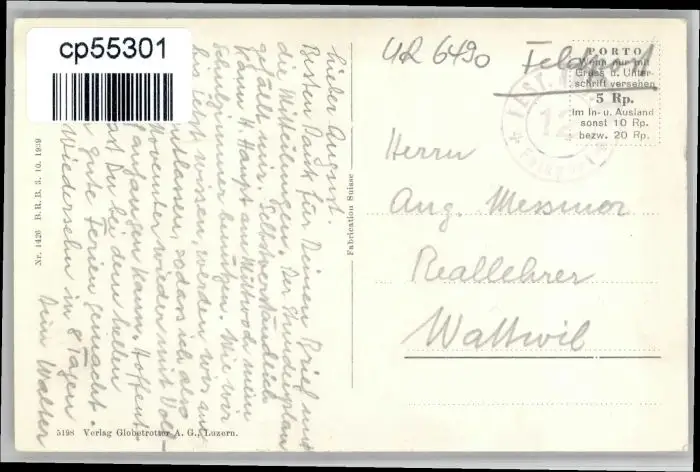 cp55301
UR 6490
Feldpost
PORTO
Wenn nur mit
Gruss u. Unter-
schrift versehen
5 Rp.
Im In- u. Ausland
sonst 10 Rp.
bezw. 20 Rp.
12
Herrn
Aug. Messmer
Reallehrer
Wattwil
Lieber August.
Besten Dank für Deinen Brief und
die Mitteilungen. Der Stundenplan
gefällt mir. Selbstverständlich
kann H. Haupt am Mittwoch mein
Schulzimmer benützen. Wie wir
bis jetzt wissen, werden wir am
entlassen, sodass ich also
November wieder mit Voll-
anfangen kann. Hoffent-
hast Du bei dem hellen
gute Ferien gemacht.
Wiedersehn in 8 Tagen
Dein Walter
Fabrication Suisse
Nr. 1426 B.R.B. 3. 10. 1939
5198 Verlag Globetrotter A. G., Luzern.